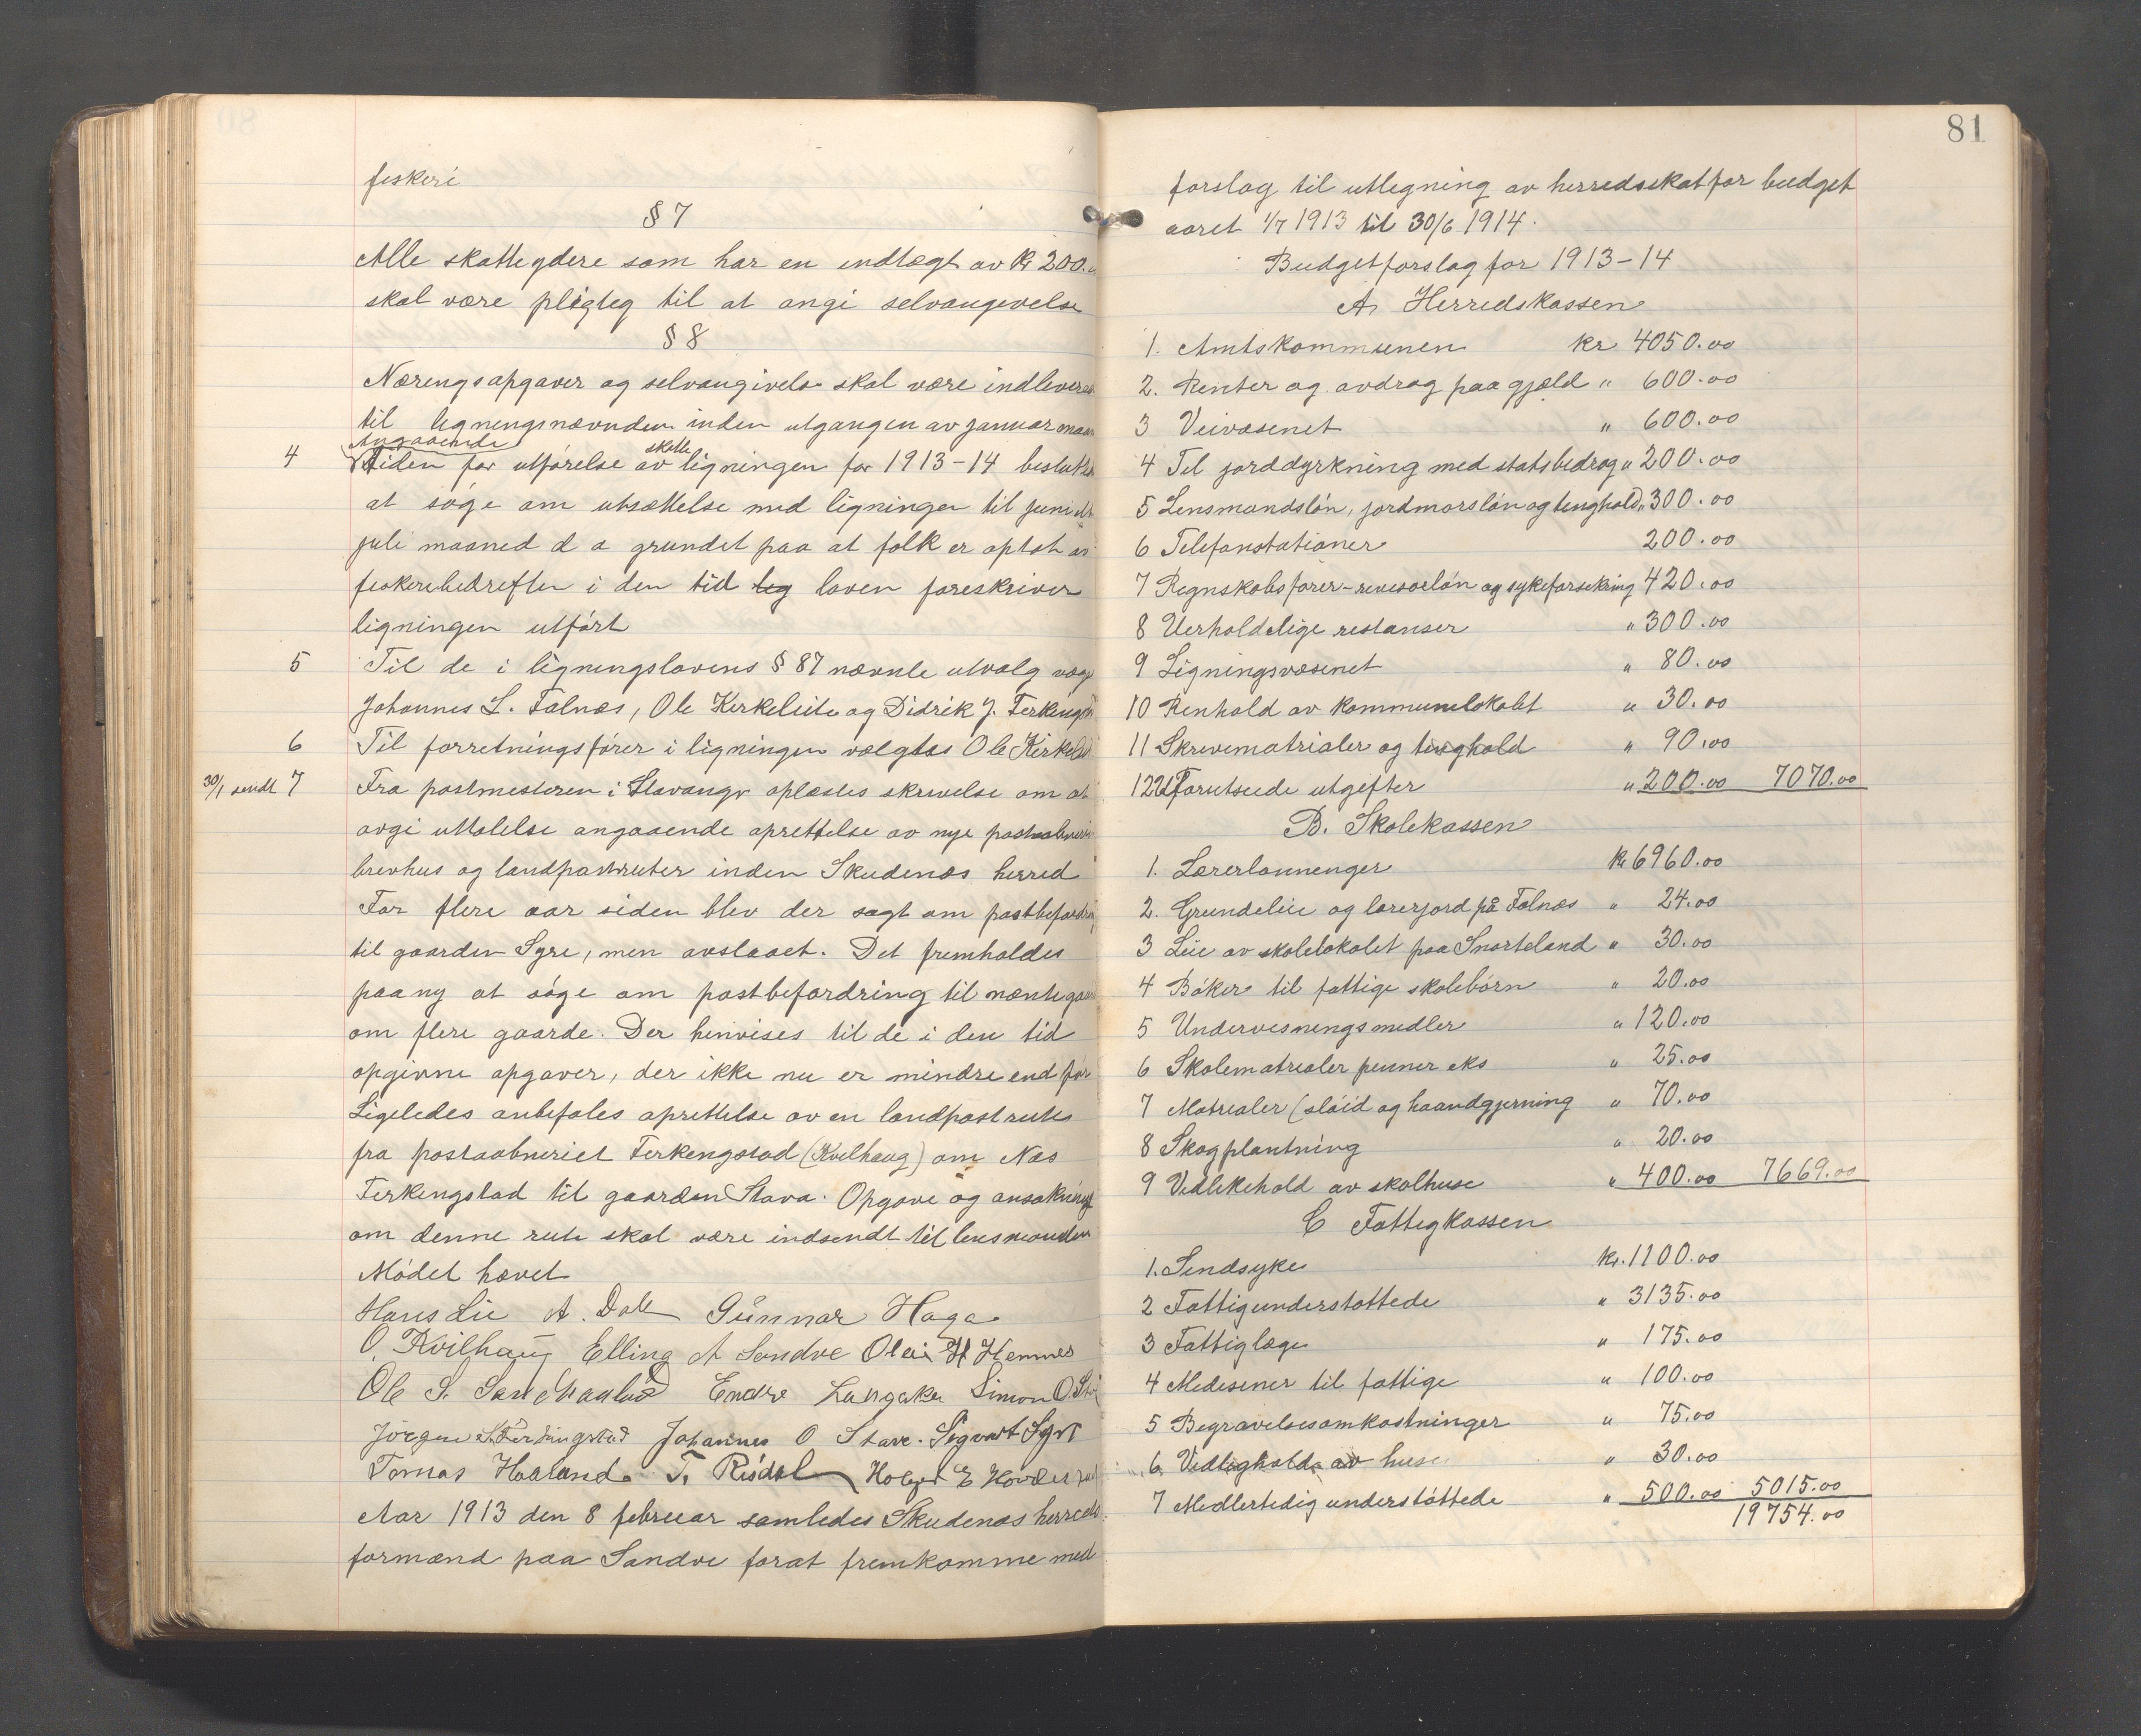 feskeri
§ 7
Alle skatteydere som har en indtægt av Kr 200.
skal være pligteg til at angi selvangevelse
§ 8
Næringsopgaver og selvangivelse skal være indleveret
til ligningsnævnden inden utgangen av januar maan
4 Angaaende
tiden for utførelse av skatteligningen for 1913-14 beslutte
at søge om utsættelse med ligningen til juni
juli maaned d a grundet paa at folk er optat av
feskerebedreften i den tid loven foreskriver
ligningen utført
5 Til de i ligningslovens § 87 nævnte utvalg valg
Johannes L. Falnes, Ole Kirkeleite og Didrik J. Ferkings
6 Til forretningsfører i ligningen valgtes Ole Kirkelei
30/1 sendt 7 Fra postmesteren i Stavanger oplæstes skrivelse om at
avgi uttalelse angaaende oprettelse av nye postaabneri
brevhus og landpostruter inden Skudenes herred
For flere aar siden blev der søgt om postbefordring
til gaarden Syre, men avslaaet. Det fremholdes
paa ny at søge om postbefordring til nævnte gaar
om flere gaarde. Der henvises til de i den tid
opgivne opgaver, der ikke nu er mindre end før
Ligeledes anbefales oprettelse av en landpostrute
fra postaabneriet Ferkengstad (Kvilhaug) om Nes
Ferkengstad til gaarden Stava. Opgave og ansøkning
om denne rute skal være indsendt til lensmanden
Mødet hævet
Hans Lie A. Dale Gunnar Haga
O. Kvilhaug Elling A Sandve Olai H Hemnes
Ole S. Endre Langaker Simon O.
Jørgen Johannes O Stave. Sigvart Syre
Tomas Haaland. T. Risdal Holger E
Aar 1913 den 8 februar samledes Skudenes herreds
formænd paa Sandve forat fremkomme med
81
forslag til utlegning av herredsskat for budget
aaret 1/7 1913 til 30/6 1914.
Budgetforslag for 1913-14
A. Herredskassen
1. Amtskommunen kr 4050.00
2. Renter og avdrag paa gjæld " 600.00
3 Veivæsenet " 600.00
4 Tel jorddyrkning med statsbedrag " 200.00
5 Lensmandsløn, jordmorsløn og tenghold " 300.00
6 Telefonstationer 200.00
7 Regnskabsfører-revesorløn og sykeforsekring 420.00
8 Uerholdelige restanser " 300.00
9 Ligningsvæsenet " 80.00
10 Renhold av kommunelokalet " 30.00
11 Skrevematrialer og tinghold " 90.00
12 Uforutseede utgefter " 200.00 7070.00
B. Skolekassen
1. Lærerlønnenger Kr 6960.00
2. Grundeleie og lærerjord på Falnes " 24.00
3 Leie av skolelokalet paa Snorteland " 30.00
4 Bøker til fattige skolebørn " 20.00
5 Undervesningsmedler " 120.00
6 Skolematrealer penner eks " 25.00
7 Matrealer (sløid og haandgjerning " 70.00
8 Skogplantning " 20.00
9 Vedlekehold av skolhuse " 400.00 7669.00
C Fattegkassen
1. Sendsyke Kr. 1100.00
2 Fattigunderstøttede " 3135.00
3 Fattiglæge " 175.00
4 Medesener til fattige " 100.00
5 Begravelsesomkostninger " 75.00
6 Vedlegholde av huse " 30.00
7 Medlertedig understøttede " 500.00 5015.00
19754.00